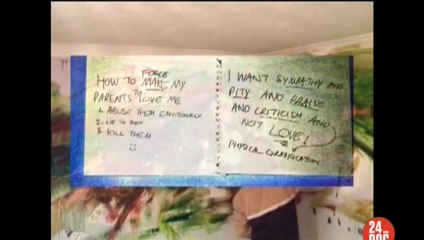 FORCE
HOW TO MAKE MY
PARENTS TO LOVE ME
1. ABUSE THEM EMOTIONALLY
2. LIE TO THEM
3. KILL THEM
I WANT SYMPATHY AND
PITY AND PRAISE
AND CRITICISM AND
NOT LOVE!
PHYSICAL GRATIFICATION
24
DOC